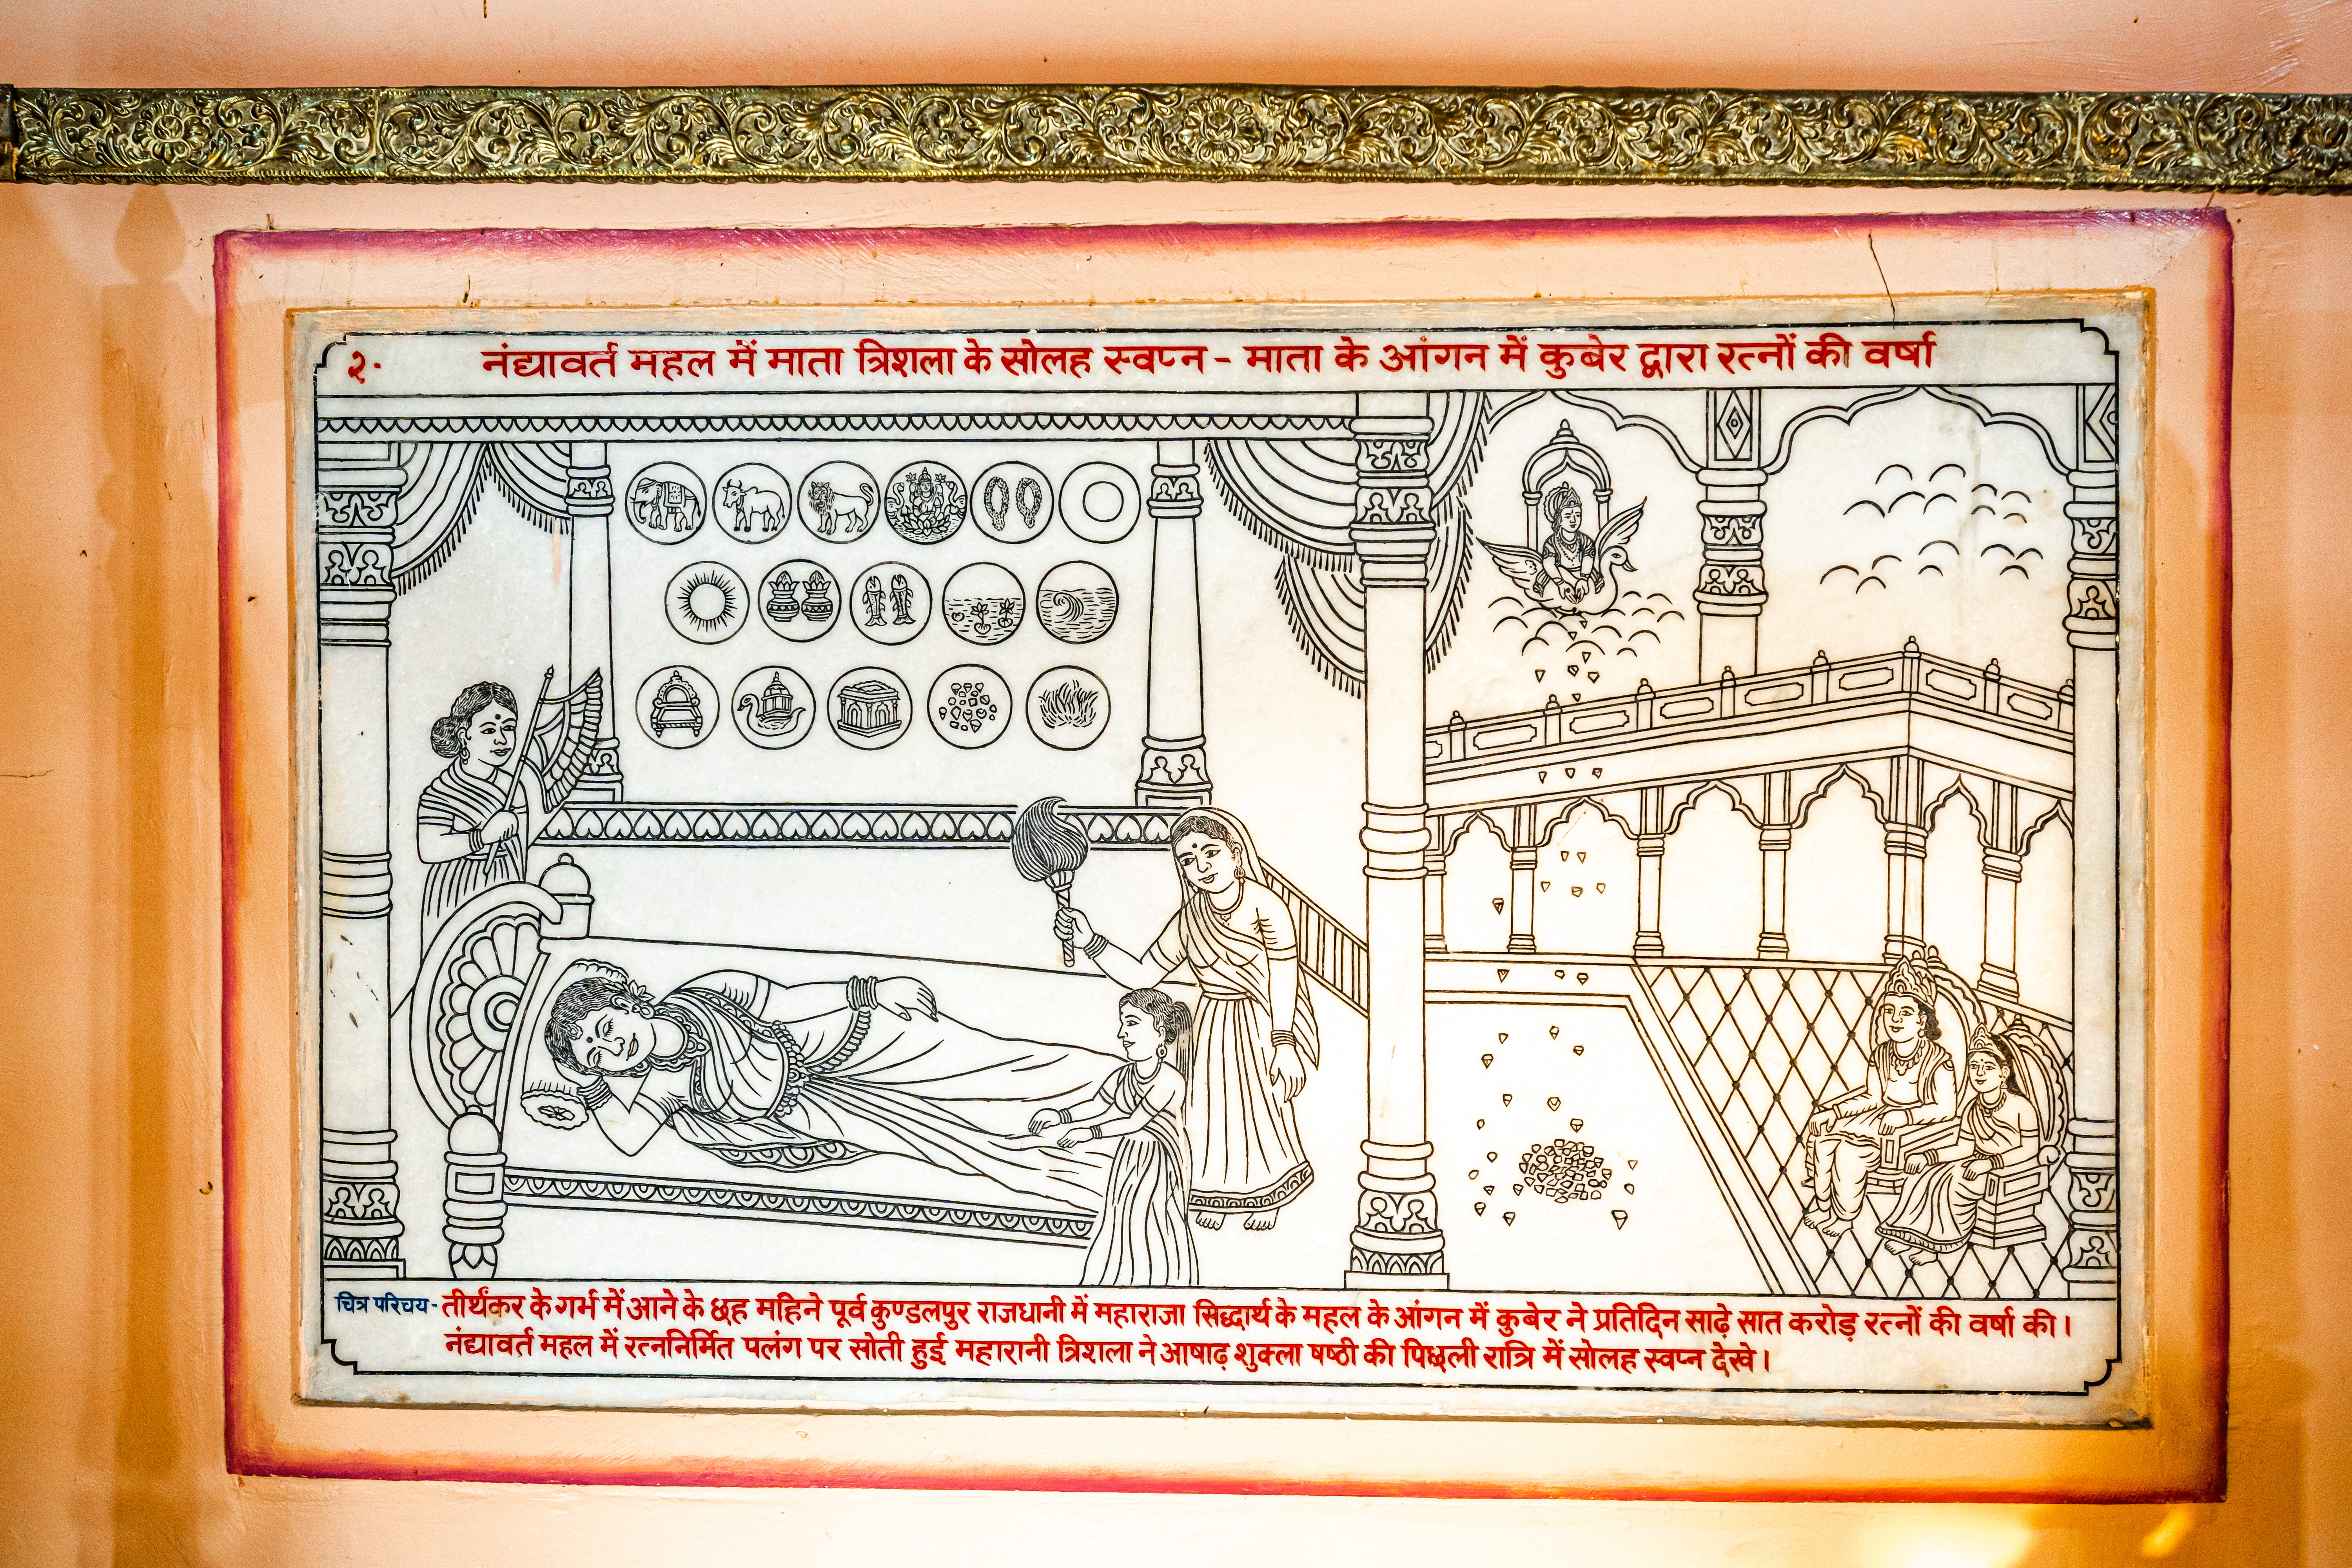 २. नंद्यावर्त महल में माता त्रिशला के सोलह स्वप्न - माता के आंगन में कुबेर द्वारा रत्नों की वर्षा
चित्र परिचय - तीर्थंकर के गर्भ में आने के छह महिने पूर्व कुण्डलपुर राजधानी में महाराजा सिद्धार्थ के महल के आंगन में कुबेर ने प्रतिदिन साढ़े सात करोड़ रत्नों की वर्षा की।
नंद्यावर्त महल में रत्ननिर्मित पलंग पर सोती हुई महारानी त्रिशला ने आषाढ़ शुक्ला षष्ठी की पिछली रात्रि में सोलह स्वप्न देखे।